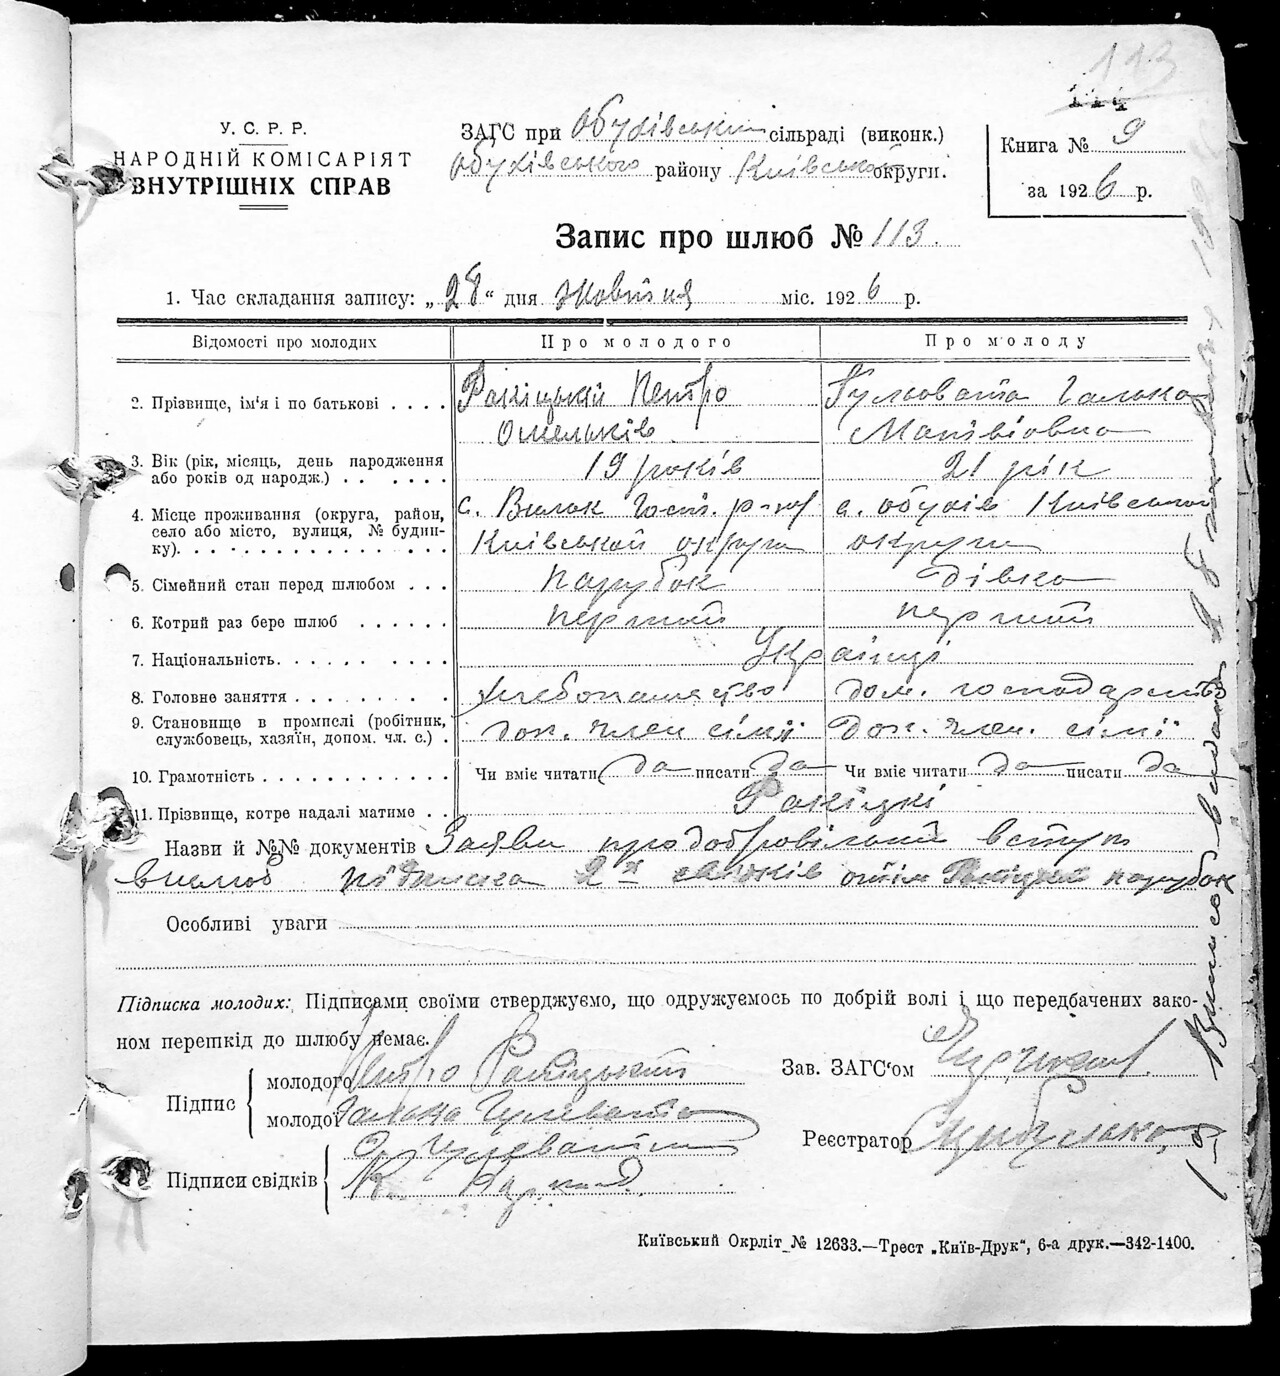 113
114
У. С. Р. Р.
НАРОДНІЙ КОМІСАРІЯТ
ВНУТРІШНІХ СПРАВ
ЗАГС при Обухівській сільраді (виконк.)
Обухівського району Київської округи.
Книга № 9
за 1926 р.
Запис про шлюб № 113.
1. Час складання запису: „28“ дня Жовтня міс. 1926 р.
Відомості про молодих Про молодого Про молоду
2. Прізвище, ім'я і по батькові . . . . Ракіцький Петро Гульовата Галька
Омельків. Матвіовна
3. Вік (рік, місяць, день народження 19 років 21 рік
або років од народж.) . . . . . .
4. Місце проживання (округа, район, с. Вилок Гост. р-ну с. Обухів Київської
село або місто, вулиця, № будин- Київської округи округи
ку). . . . . . . . . . . . . .
5. Сімейний стан перед шлюбом . . . парубок дівка
6. Котрий раз бере шлюб . . . . . . перший перший
7. Національність. . . . . . . . . . Українці
8. Головне заняття . . . . . . . . . хлебопашество дом. господарство
9. Становище в промислі (робітник, доп. член сімї доп. член. сімї
службовець, хазяїн, допом. чл. с.) .
10. Грамотність . . . . . . . . . . . Чи вміє читати да писати да Чи вміє читати да писати да
11. Прізвище, котре надалі матиме . . Ракіцкі
Назви й №№ документів Заяви про добровільний вступ
в шлюб підписка 2х свідків
парубок
Особливі уваги
Підписка молодих: Підписами своїми стверджуємо, що одружуємось по добрій волі і що передбачених зако-
ном перешкід до шлюбу немає.
Підпис
молодого Петро Ракіцький
молодої Галька Гулевата
Підписи свідків
Зав. ЗАГС'ом
Реєстратор Цибулько
Київський Окрліт № 12633.—Трест „Київ-Друк“, 6-а друк.—342-1400.
Виписъ видана 28